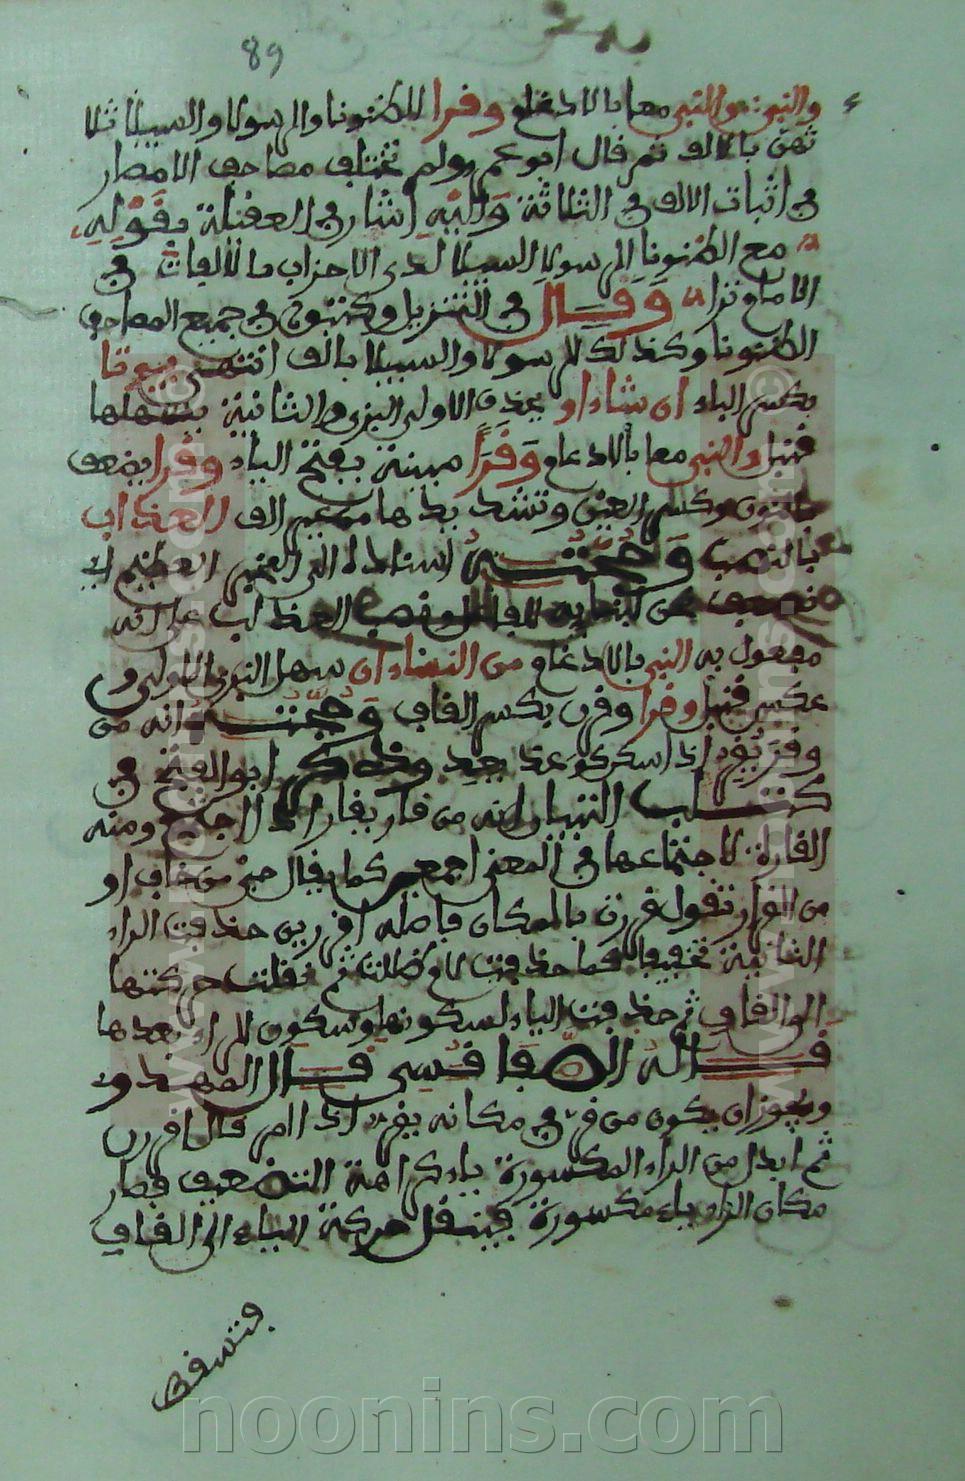 89
والنبي والنبي معا بالادغام وقرا الظنونا والرسولا والسبيلا ثلا
ثتهن بالالف ثم قال ابو عمرو ولم تختلف مصاحف الامصار
في اثبات الالف في الثلاثة واليه اشار في العقيلة بقوله
مع الظنونا الرسولا السبيلا لدى الاحزاب بالالفات في
الامام ترا وقال في التنزيل وكتبوا في جميع المصاحف
الظنونا وكذلك الرسولا والسبيلا بالف انتهى
بكسر الباء ان شاء او بحذف الاولى البزي والثانية يسهلها
قنبل والنبي معا بالادغام وقرا مبينة بفتح الياء وقرا نضعف
بالنون وكسر العين وتشديدها من غير الف العذاب
بالنصب وحجته اسناده الى العظيم
العذاب على انه
مفعول به النبي بالادغام من النساء ان سهل البزي الاولى و
عكس قنبل وقرا وقرن بكسر القاف وحجته انه من
وقر يقر اذا سكن كوعد يعد وذكر ابو الفتح في
كتاب التبيان انه من قار يقار اذا اجتمع ومنه
القارة لاجتماعها في المعنى اجمعي كما يقال خفن من خاف او
من القرار تقول قررن بالمكان فاصله اقررن حذفت الراء
الثانية تخفيفا كما حذفت لام ظللت ثم نقلت حركتها
الى القاف ثم حذفت الياء لسكونها وسكون الراء بعدها
قاله الصفاقسي قال المهدوي
ويجوز ان يكون من قر في مكانه يقر اذا امر قال اقررن
ثم ابدل من الراء المكسورة ياء كراهة التضعيف فصار
مكان الراء ياء مكسورة فينقل حركة الياء الى القاف
فتسقط
noonins.com